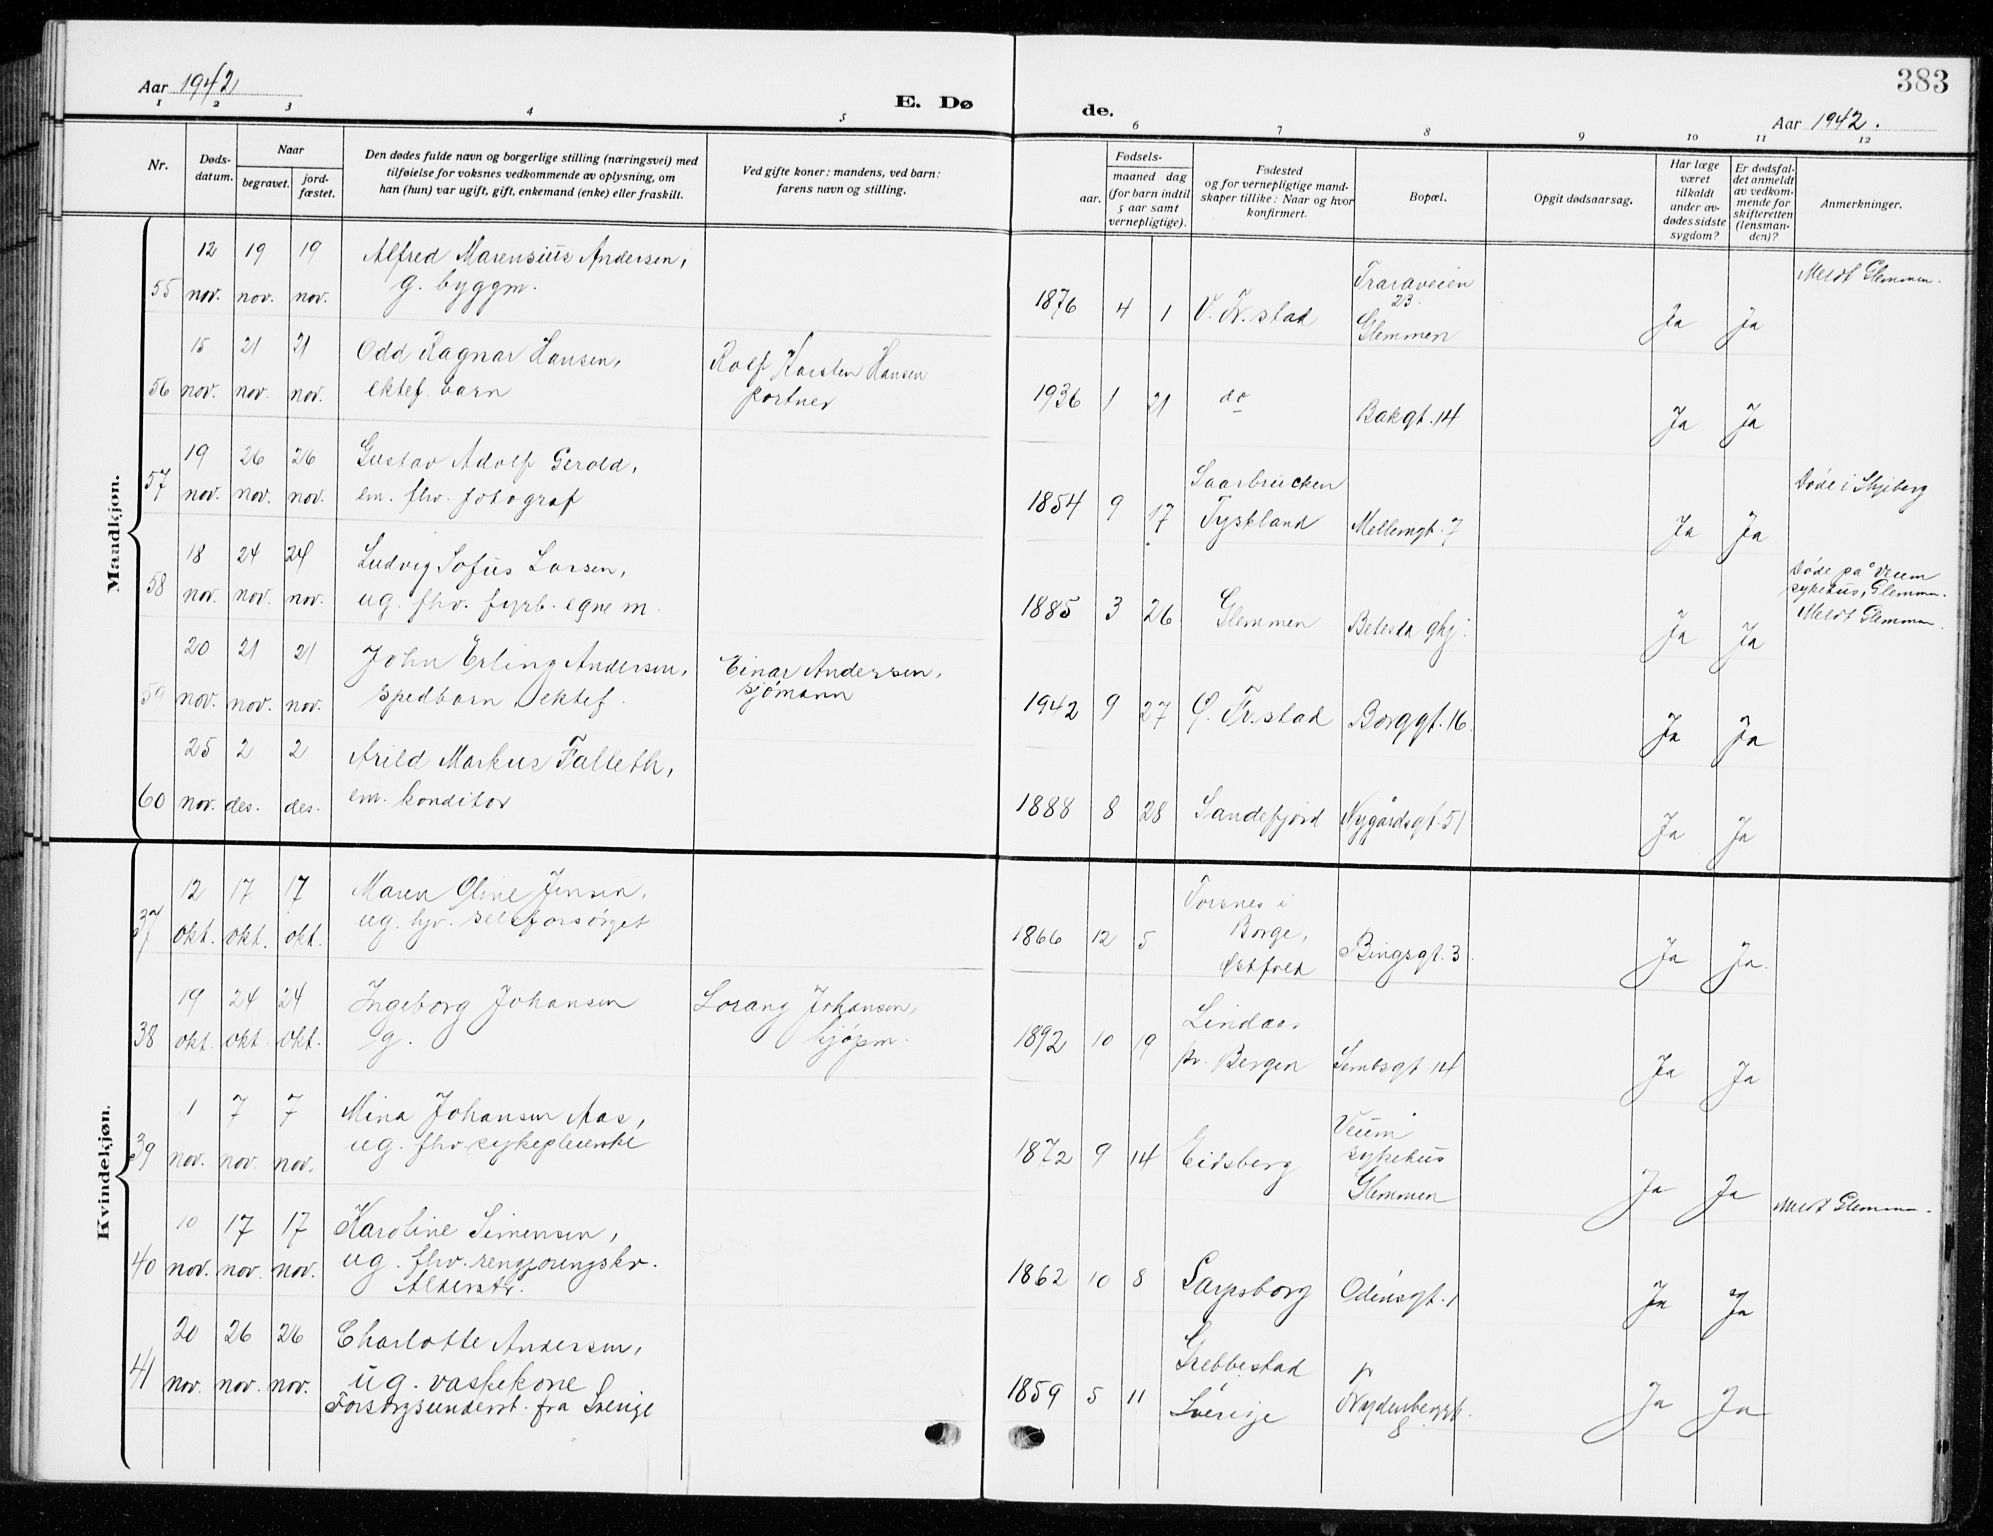 383
Aar 1942
E. Dø de.
Aar 1942.
1 2 3 4 5 6 7 8 9 10 11 12
Nr.
Døds-
datum.
Naar
begravet.
jord-
fæstet.
Den dødes fulde navn og borgerlige stilling (næringsvei) med
tilføielse for voksnes vedkommende av oplysning, om
han (hun) var ugift, gift, enkemand (enke) eller fraskilt.
Ved gifte koner: mandens, ved barn:
farens navn og stilling.
Fødsels-
aar.
maaned dag
(for barn indtil
5 aar samt
vernepligtige).
Fødested
og for vernepligtige mand-
skaper tillike: Naar og hvor
konfirmert.
Bopæl.
Opgit dødsaarsag.
Har læge
været
tilkaldt
under av-
dødes sidste
sygdom?
Er dødsfal-
det anmeldt
av vedkom-
mende for
skifteretten
(lensman-
den)?
Anmerkninger.
Mandkjøn.
55
12 nov. 19 nov. 19 nov.
Alfred Marensius Andersen,
g. byggm.
1876 4 1
V. Fr.stad
Traraveien
23
Glemmen
Ja Ja
Meldt Glemmen.
56
15 nov. 21 nov. 21 nov.
Odd Ragnar Hansen,
ektef. barn
Rolf Karsten Hansen
portner
1936 1 21
do
Bakgt. 14
Ja Ja
57
19 nov. 26 nov. 26 nov.
Gustav Adolf Gerold,
em. fhv. fotograf
1854 9 17
Saarbrucken
Tyskland
Mellemgt. 7
Ja Ja
Døde i Skjeberg
58
18 nov. 24 nov. 24 nov.
Ludvig Sofus Larsen,
ug. fhv. fyrb. egne m.
1885 3 26
Glemmen
Betesda ghj.
Ja Ja
Døde på Veum
sykehus, Glemmen.
Meldt Glemmen.
59
20 nov. 21 nov. 21 nov.
John Erling Andersen,
spedbarn, ektef.
Einar Andersen,
sjømann
1942 9 27
Ø. Fr.stad
Borggt. 16
Ja Ja
60
25 nov. 2 des. 2 des.
Arild Markus Falleth,
em. konditor
1888 8 28
Sandefjord
Nygårdsgt. 51
Ja Ja
Kvindekjøn.
37
12 okt. 17 okt. 17 okt.
Maren Oline Jensen,
ug. hjv. selvforsørget
1866 12 5
Torsnes i
Borge,
Østfold
Bingsgt. 3
Ja Ja.
38
19 okt. 24 okt. 24 okt.
Ingeborg Johansen
g.
Lorang Johansen,
kjøpm.
1892 10 19
Lindaas
pr. Bergen
Lembsgt. 14
Ja Ja
39
1 nov. 7 nov. 7 nov.
Mina Johansen Aas,
ug. fhv. sykepleierske
1872 9 14
Eidsberg
Veum
sykehus
Glemmen
Ja Ja
Meldt Glemmen.
40
10 nov. 17 nov. 17 nov.
Karoline Simensen,
ug. fhv. rengjøringskv.
Alderstr.
1862 10 8
Sarpsborg
Odinsgt. 1
Ja Ja
41
20 nov. 26 nov. 26 nov.
Charlotte Andersen,
ug. vaskekone
Forsorgsunderst. fra Sverige
1859 5 11
Grebbestad
Sverige
8
Ja Ja